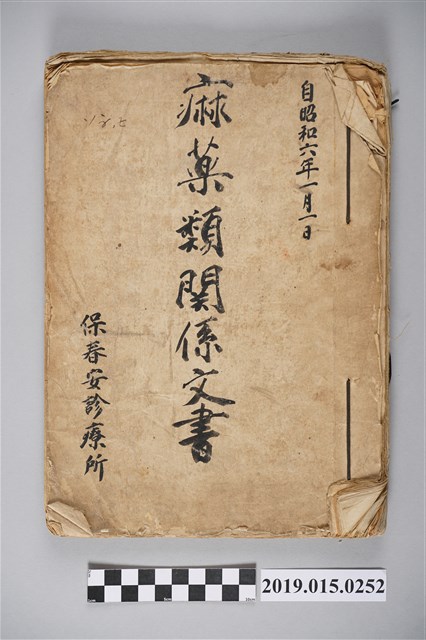 自昭和六年一月一日
麻薬類関係文書
保春安診療所
2019.015.0252